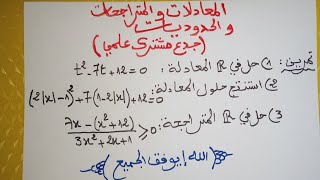 المعادلات والمتراجحات
والحدوديات
(جدع مشترك علمي)
تمرين: ① حل في ℝ المعادلة: t² - 7t + 12 = 0
② استنتج حلول المعادلة:
(2|x| - 1)² + 7(1 - 2|x|) + 12 = 0
③ حل في ℝ المتراجحة: (7x - (x² + 12)) / (3x² + 2x + 1) ≥ 0
الله إيوفق الجميع